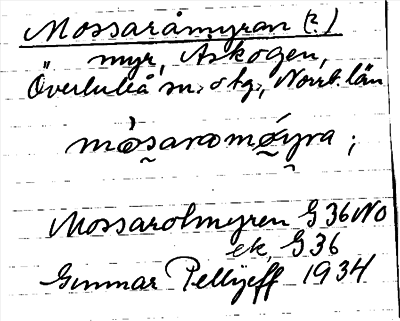 Mossaråmyran (?)
myr, Askogen,
Överluleå sn, o tg., Norrb. län
mòsaromǿyra ;
Mossarolmyren G 36 NO
ek. G 36
Gunnar Pellijeff 1934